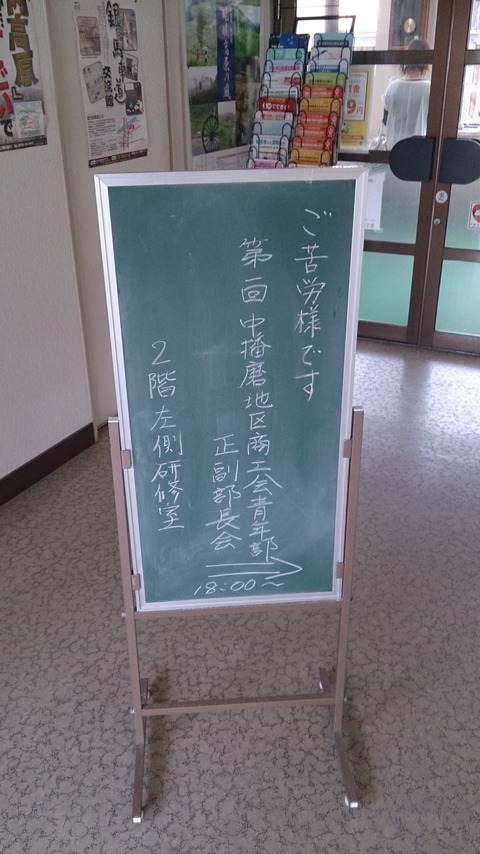 ご苦労様です
第一回中播磨地区商工会青年部
正副部長会
18:00〜
2階左側研修室
銀の馬車道
交流館